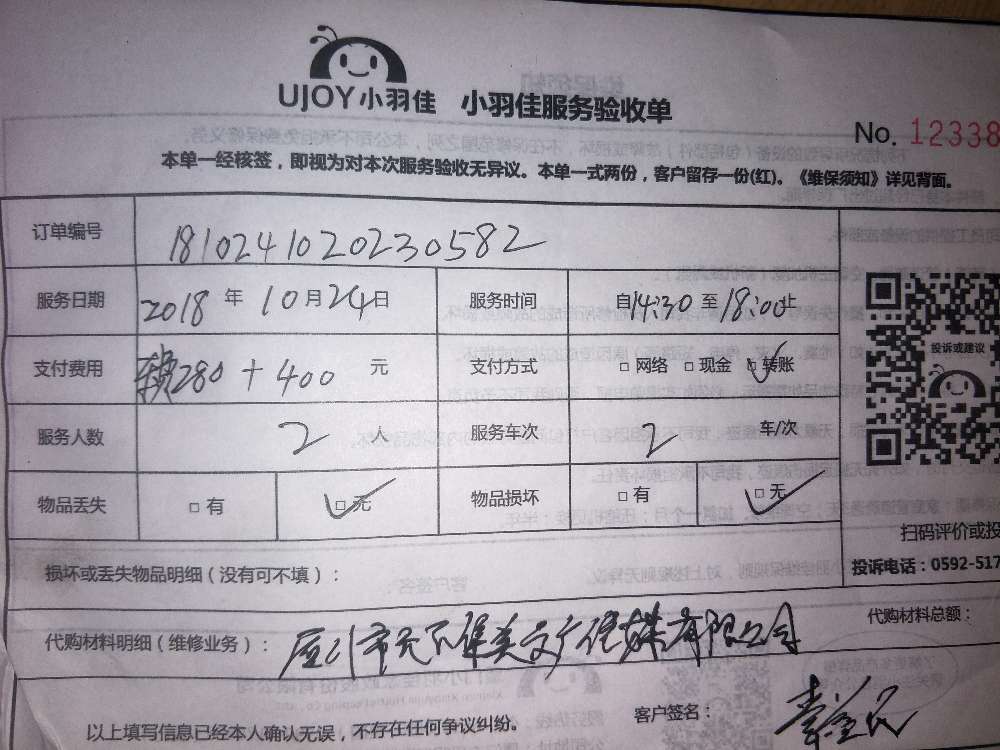 UJOY小羽佳 小羽佳服务验收单
No. 12338
本单一经核签，即视为对本次服务验收无异议。本单一式两份，客户留存一份(红)。《维保须知》详见背面。
订单编号 181024102023０582
服务日期 2018 年 10月24日 服务时间 自14:30 至18:00止
支付费用 280 + 400 元 支付方式 □ 网络 □ 现金 □ 转账
服务人数 2 人 服务车次 2 车/次
物品丢失 □ 有 □ 无 物品损坏 □ 有 □ 无
投诉或建议
扫码评价或投
损坏或丢失物品明细（没有可不填）：
投诉电话：0592-517
代购材料明细（维修业务）： 厦门市天下集美文广传媒有限公司 代购材料总额：
以上填写信息已经本人确认无误，不存在任何争议纠纷。 客户签名：